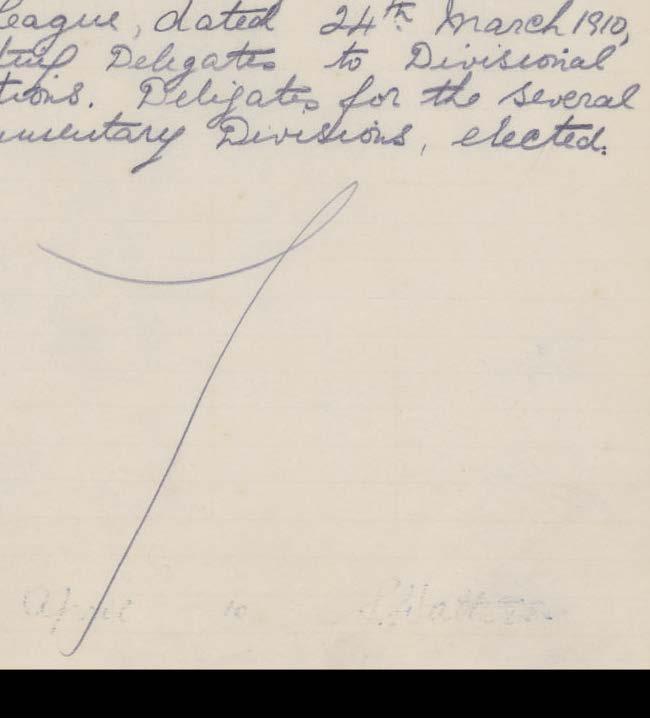 League, dated 24th March 1910,
Delegates to Divisional
Delegates for the several
Divisions, elected.
April 10